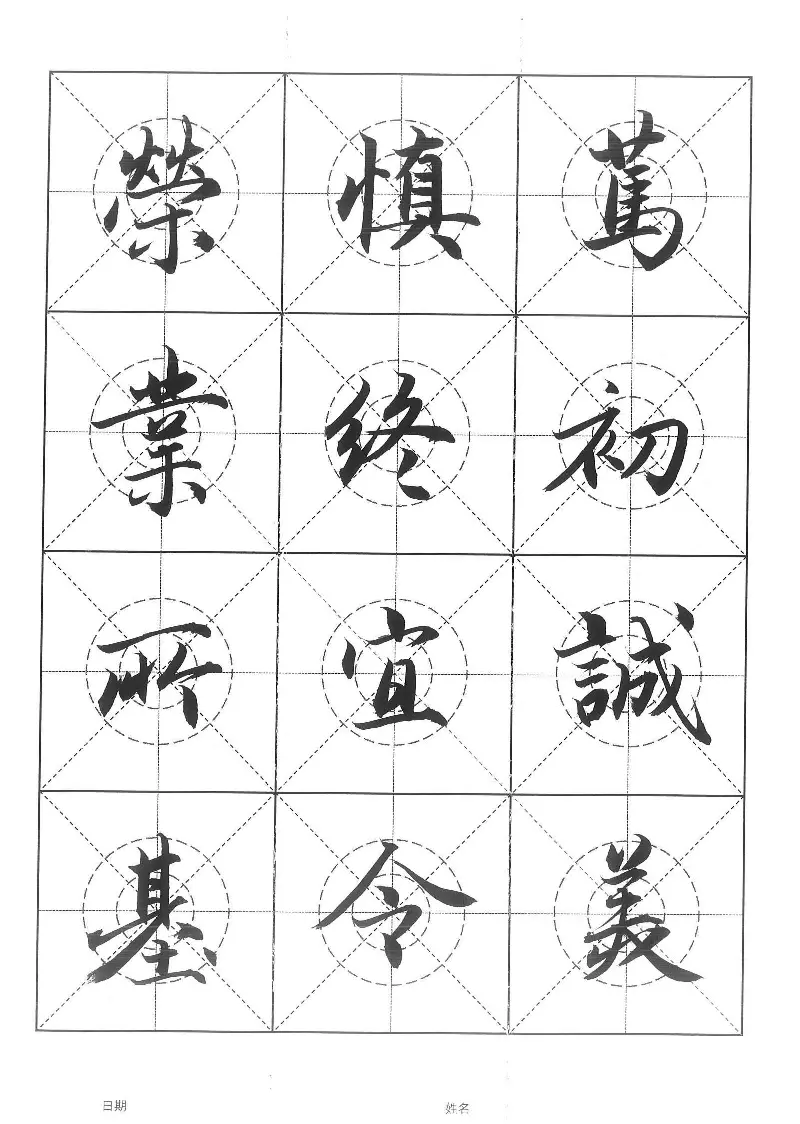 篤初誠美
慎終宜令
榮業所基
日期
姓名